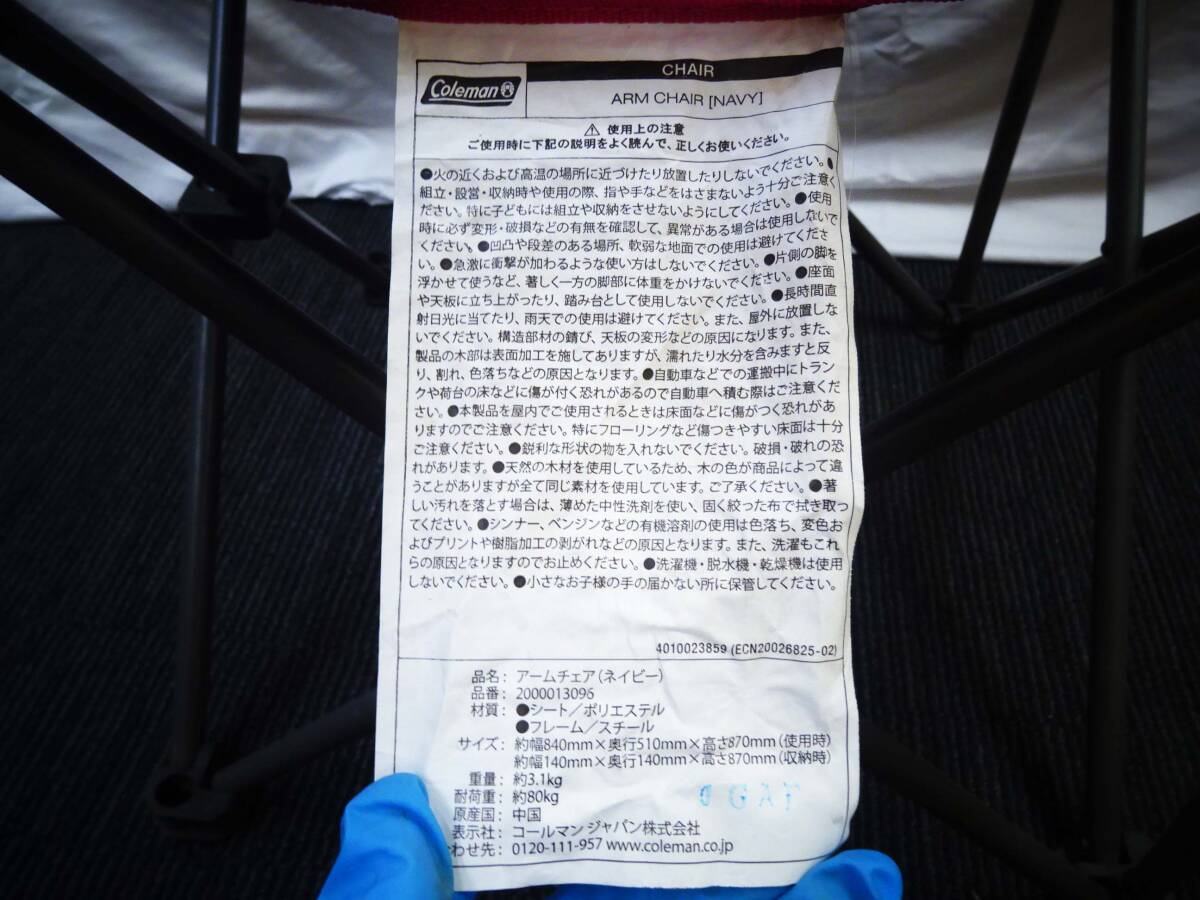 Coleman
CHAIR
ARM CHAIR [NAVY]
⚠ 使用上の注意
ご使用時に下記の説明をよく読んで、正しくお使いください。
●火の近くおよび高温の場所に近づけたり放置したりしないでください。●
組立・設営・収納時や使用の際、指や手などをはさまないよう十分ご注意く
ださい。特に子どもには組立や収納をさせないようにしてください。●使用
時に必ず変形・破損などの有無を確認して、異常がある場合は使用しないで
ください。●凹凸や段差のある場所、軟弱な地面での使用は避けてくださ
い。●急激に衝撃が加わるような使い方はしないでください。●片側の脚を
浮かせて使うなど、著しく一方の脚部に体重をかけないでください。●座面
や天板に立ち上がったり、踏み台として使用しないでください。●長時間直
射日光に当てたり、雨天での使用は避けてください。また、屋外に放置しな
いでください。構造部材の錆び、天板の変形などの原因になります。また、
製品の木部は表面加工を施してありますが、濡れたり水分を含みますと反
り、割れ、色落ちなどの原因となります。●自動車などでの運搬中にトラン
クや荷台の床などに傷が付く恐れがあるので自動車へ積む際はご注意くだ
さい。●本製品を屋内でご使用されるときは床面などに傷がつく恐れがあ
りますのでご注意ください。特にフローリングなど傷つきやすい床面は十分
ご注意ください。●鋭利な形状の物を入れないでください。破損・破れの恐
れがあります。●天然の木材を使用しているため、木の色が商品によって違
うことがありますが全て同じ素材を使用しています。ご了承ください。●著
しい汚れを落とす場合は、薄めた中性洗剤を使い、固く絞った布で拭き取っ
てください。●シンナー、ベンジンなどの有機溶剤の使用は色落ち、変色お
よびプリントや樹脂加工の剥がれなどの原因となります。また、洗濯もこれ
らの原因となりますのでお止めください。●洗濯機・脱水機・乾燥機は使用
しないでください。●小さなお子様の手の届かない所に保管してください。
4010023859 (ECN20026825-02)
品名：アームチェア（ネイビー）
品番：2000013096
材質：●シート／ポリエステル
●フレーム／スチール
サイズ：約幅840mm×奥行510mm×高さ870mm（使用時）
約幅140mm×奥行140mm×高さ870mm（収納時）
重量：約3.1kg
耐荷重：約80kg
原産国：中国
表示社：コールマン ジャパン株式会社
わせ先：0120-111-957 www.coleman.co.jp